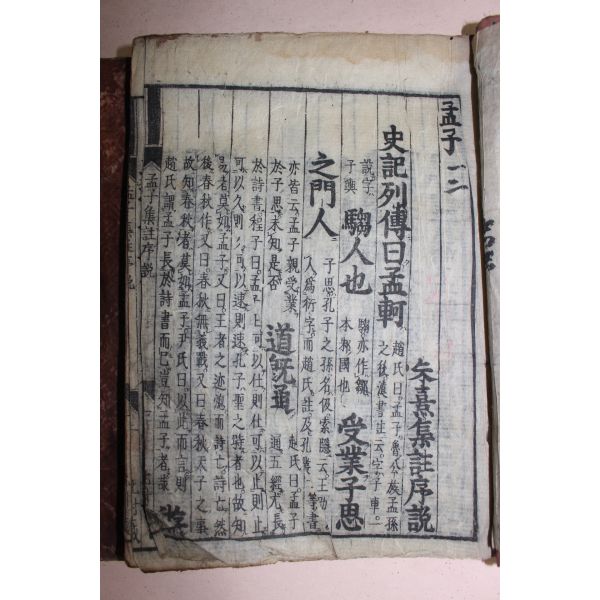 孟子 一二
朱熹集註序說
史記列傳曰孟軻
趙氏曰孟子魯公族孟孫
之後漢書註云字子車一
說字
子輿
騶人也
騶亦作鄒
本邾國也
受業子思
之門人
子思孔子之孫名伋索隱云王劭
以人爲衍字而趙氏註及孔叢子等書
亦皆云孟子親受業
於子思未知是否
道旣通
趙氏曰孟子
通五經尤長
於詩書程子曰孟子曰可以仕則仕可以止則止
可以久則久可以速則速孔子聖之時者也故知
易者莫如孟子又曰王者之迹熄而詩亡詩亡然
後春秋作又曰春秋無義戰又曰春秋天子之事
故知春秋者莫如孟子尹氏曰以此而言則
趙氏謂孟子長於詩書而已豈知孟子者哉
遊
孟子集註序說